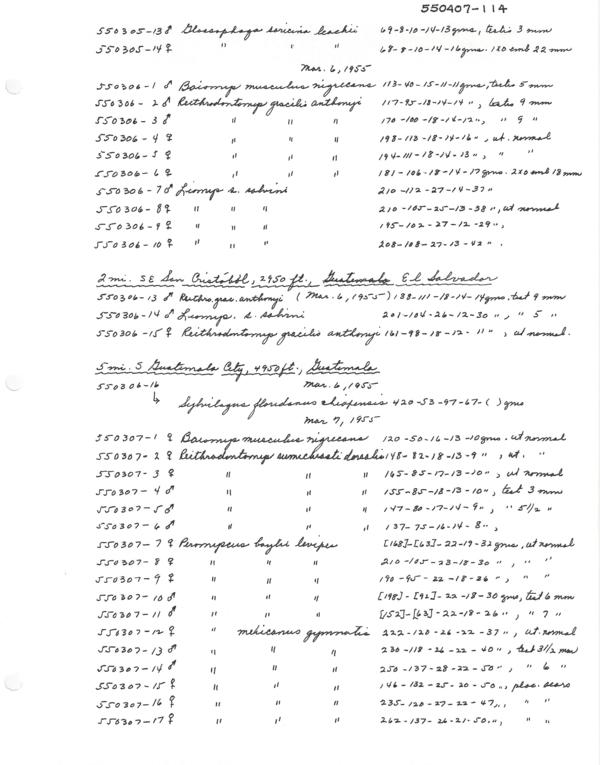 550407-114
550305-13♂ Glossophaga soricina leachii 69-8-10-14-13gms, testis 3 mm
550305-14♀ " " " 68-8-10-14-16gms. 1x0 emb 22 mm
Mar. 6, 1955
550306-1 ♂ Baiomys musculus nigrescens 113-40-15-11-11gms, testes 5 mm
550306-2♂ Reithrodontomys gracilis anthonyi 117-95-18-14-14 ", testes 9 mm
550306-3♂ " " " 170-100-18-14-12", " 9 "
550306-4♀ " " " 198-113-18-14-16 ", ut. normal
550306-5 ♀ " " " 194-111-18-14-13 ", " "
550306-6♀ " " " 181-106-18-14-17gms. 2x0 emb 18mm
550306-7♂ Liomys s. salvini 210-112-27-14-37"
550306-8♀ " " " 210-105-25-13-38 ", ut normal
550306-9♀ " " " 195-102-27-12-29",
550306-10♀ " " " 208-108-27-13-42 ".
2 mi. SE San Cristóbol, 2950 ft., Guatemala El Salvador
550306-13 ♂ Reithro. grac. anthonyi (Mar. 6, 1955) 188-111-18-14-14gms, test 9 mm
550306-14♂ Liomys. s. salvini 201-104-26-12-30 ", " 5 "
550306-15♀ Reithrodontomys gracilis anthonyi 161-98-18-12- 11" , ut normal.
5 mi. S Guatemala City, 4950 ft., Guatemala
550306-16 Mar. 6, 1955
↳ Sylvilagus floridanus chiapensis 420-53-97-67-( ) gms
Mar 7, 1955
550307-1 ♀ Baiomys musculus nigrescens 120-50-16-13-10gms. ut normal
550307-2 ♀ Reithrodontomys sumichrasti dorsalis 148-82-18-13-9 ", ut. "
550307-3 ♀ " " " 165-85-17-13-10", ut normal
550307-4♂ " " " 155-85-18-13-10", test 3 mm
550307-5♂ " " " 147-80-17-14-9", " 5 1/2 "
550307-6♂ " " " 137-75-16-14-8",
550307-7♀ Peromyscus boylii levipes [168]-[63]-22-19-32gms, ut normal
550307-8♀ " " " 210-105-23-18-30 ", " "
550307-9♀ " " " 190-95-22-18-26 ", " "
550307-10♂ " " " [198]-[96]-22-18-30 gms, test 6 mm
550307-11♂ " " " [152]-[63]-22-18-26 ", " 7 "
550307-12♀ " mexicanus gymnotis 222-120-26-22-37 ", ut. normal
550307-13♂ " " " 230-118-26-22-40 ", test 3 1/2 mm
550307-14♂ " " " 250-137-28-22-50 ", " 6 "
550307-15♀ " " " 146-132-25-20-50 ", plac. scars
550307-16♀ " " " 235-120-27-22-47", " "
550307-17♀ " " " 262-137-26-21-50.", " "